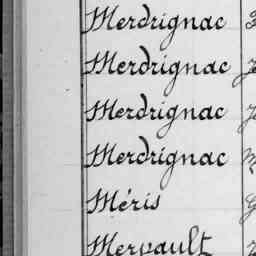 Merdrignac
Merdrignac
Merdrignac
Merdrignac
Méris
Mervault